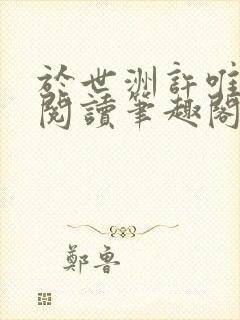 於世洲許唯
閱讀筆趣閣
鄭魯